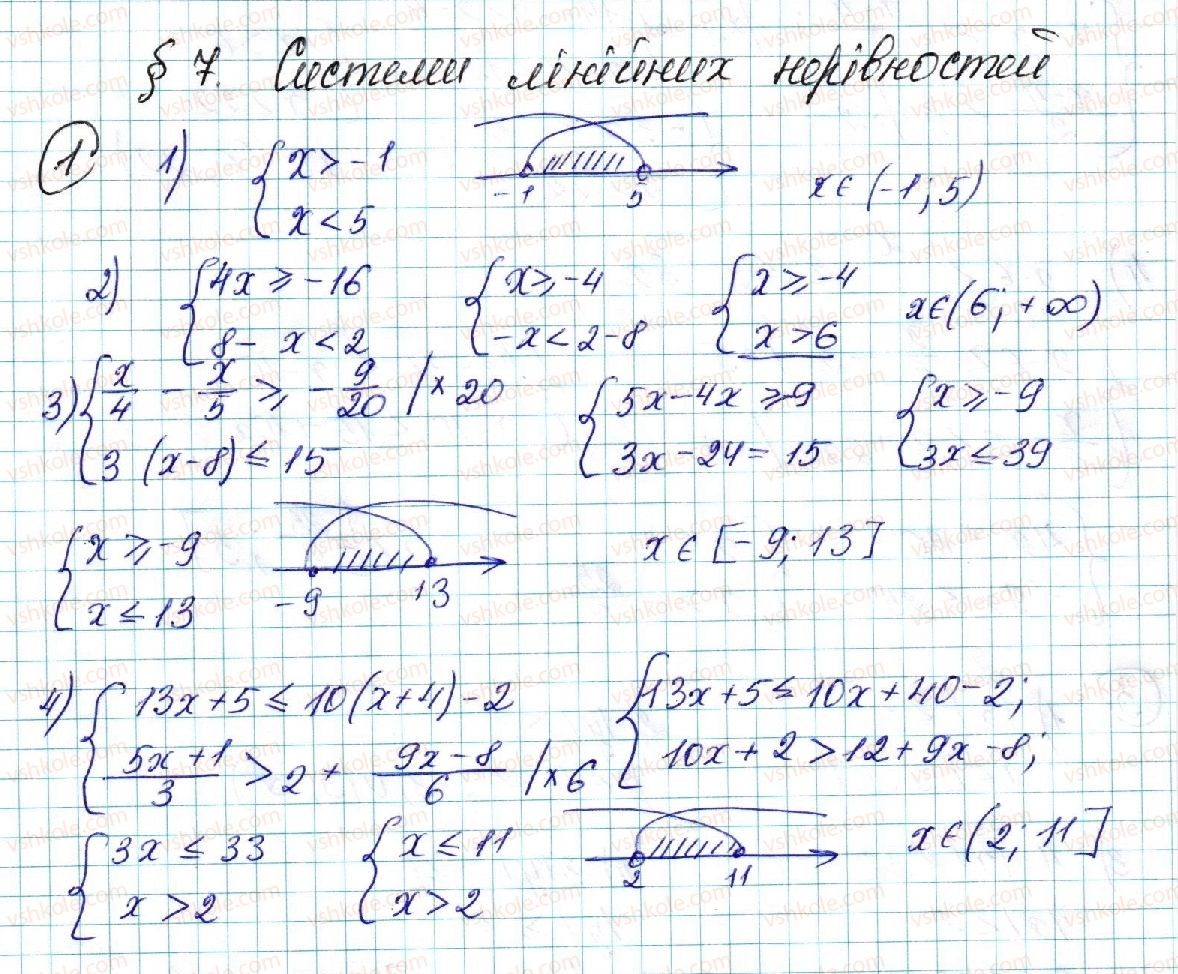 § 7. Системи лінійних нерівностей
1 1) { x > -1 x < 5 -1 5 x ∈ (-1; 5)
2) { 4x ≥ -16 8 - x < 2 { x ≥ -4 -x < 2 - 8 { x ≥ -4 x > 6 x ∈ (6; +∞)
3) { x/4 - x/5 ≥ -9/20 |×20 3 (x-8) ≤ 15 { 5x - 4x ≥ -9 3x - 24 = 15 { x ≥ -9 3x ≤ 39
{ x ≥ -9 x ≤ 13 -9 13 x ∈ [-9; 13]
4) { 13x + 5 ≤ 10(x+4) - 2 (5x+1)/3 > 2 + (9x-8)/6 |×6 { 13x + 5 ≤ 10x + 40 - 2; 10x + 2 > 12 + 9x - 8;
{ 3x ≤ 33 x > 2 { x ≤ 11 x > 2 2 11 x ∈ (2; 11]
vshkole.com